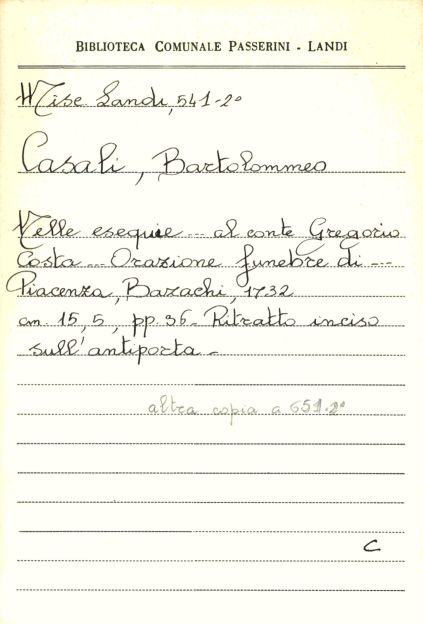 BIBLIOTECA COMUNALE PASSERINI - LANDI
Misc. Landi, 541-2º
Casali, Bartolommeo
Nelle esequie --- al conte Gregorio
Costa --- Orazione funebre di ---
Piacenza, Bazachi, 1732
cm. 15,5, pp. 36 - Ritratto inciso
sull'antiporta -
altra copia a 651-2º
C